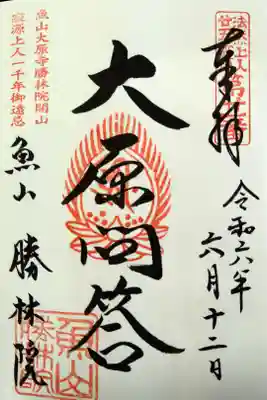 法然上人
奉拝
令和六年
六月十二日
大原問答
魚山大原寺勝林院開山
寂源上人一千年御遠忌
魚山 勝林院
魚山
勝林院